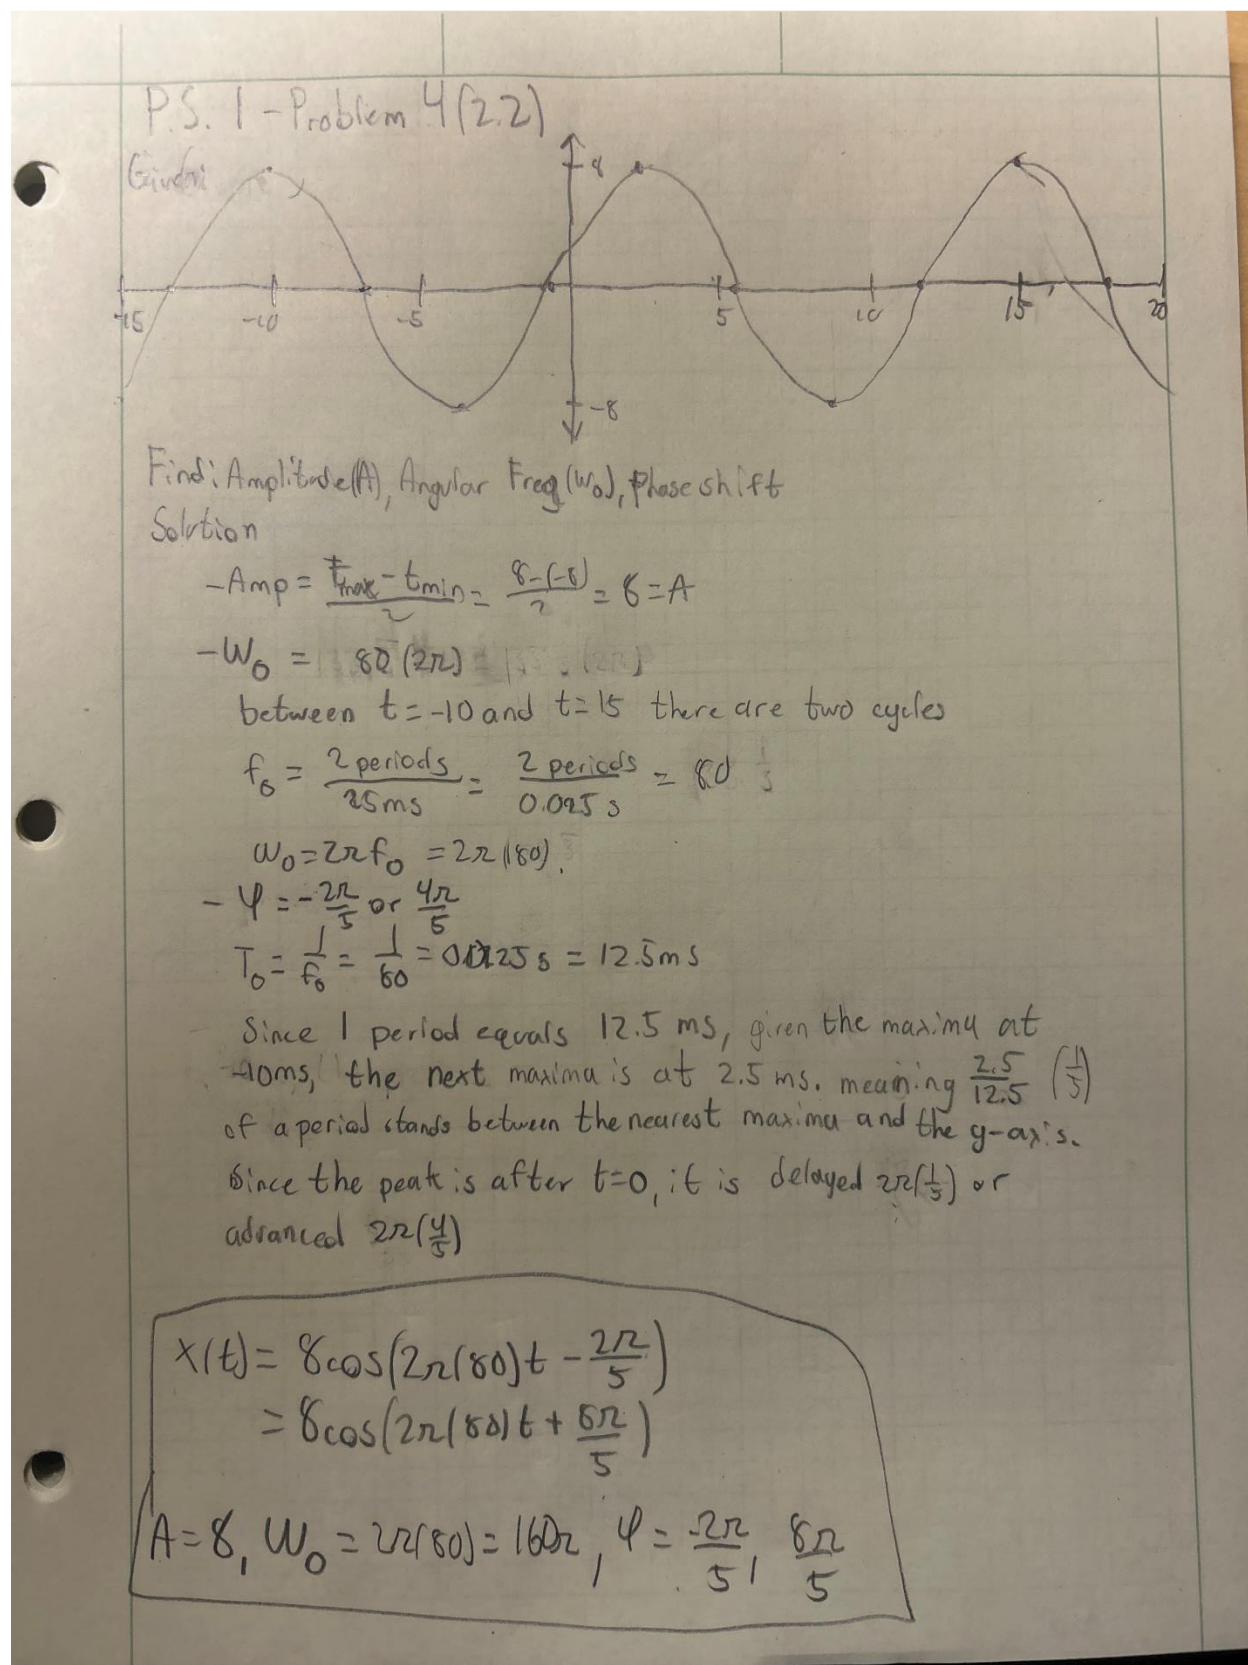 P.S. 1 - Problem 4(2.2)
Given:
8
-15 -10 -5 5 10 15 20
-8
Find: Amplitude(A), Angular Freq(W₀), Phase shift
Solution
-Amp = (t_max - t_min)/2 = (8-(-8))/2 = 8 = A
-W₀ = 80(2π)
between t=-10 and t=15 there are two cycles
f₀ = 2 periods/25ms = 2 periods/0.025 s = 80 1/s
ω₀=2πf₀ = 2π(80).
- φ = -2π/5 or 4π/5
T₀ = 1/f₀ = 1/80 = 0.0125 s = 12.5ms
Since 1 period equals 12.5 ms, given the maxima at
-10ms, the next maxima is at 2.5 ms. meaning 2.5/12.5 (1/5)
of a period stands between the nearest maxima and the y-axis.
Since the peak is after t=0, it is delayed 2π(1/5) or
advanced 2π(4/5)
x(t) = 8cos(2π(80)t - 2π/5)
= 8cos(2π(80)t + 8π/5)
A=8, W₀ = 2π(80) = 160π, φ = -2π/5, 8π/5